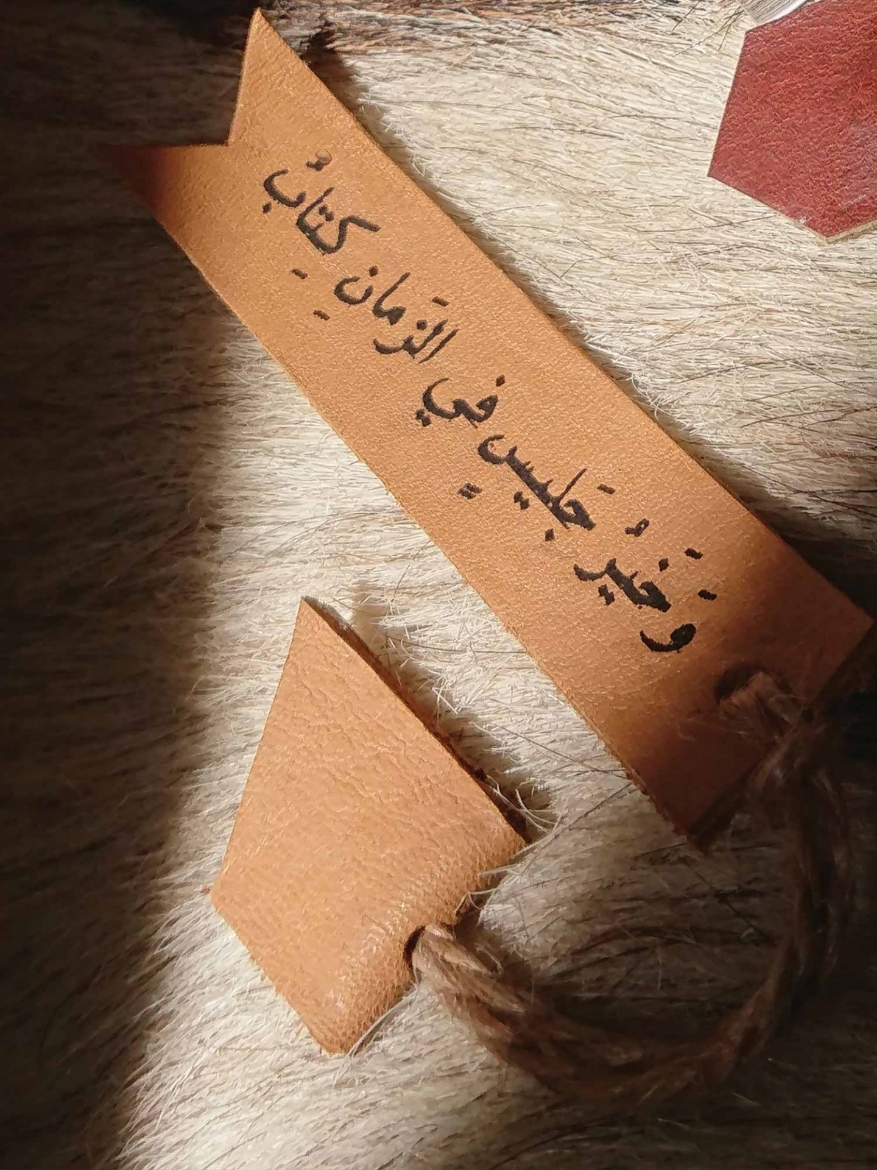 وَخَيْرُ جَلِيسٍ فِي الزَّمانِ كِتابُ